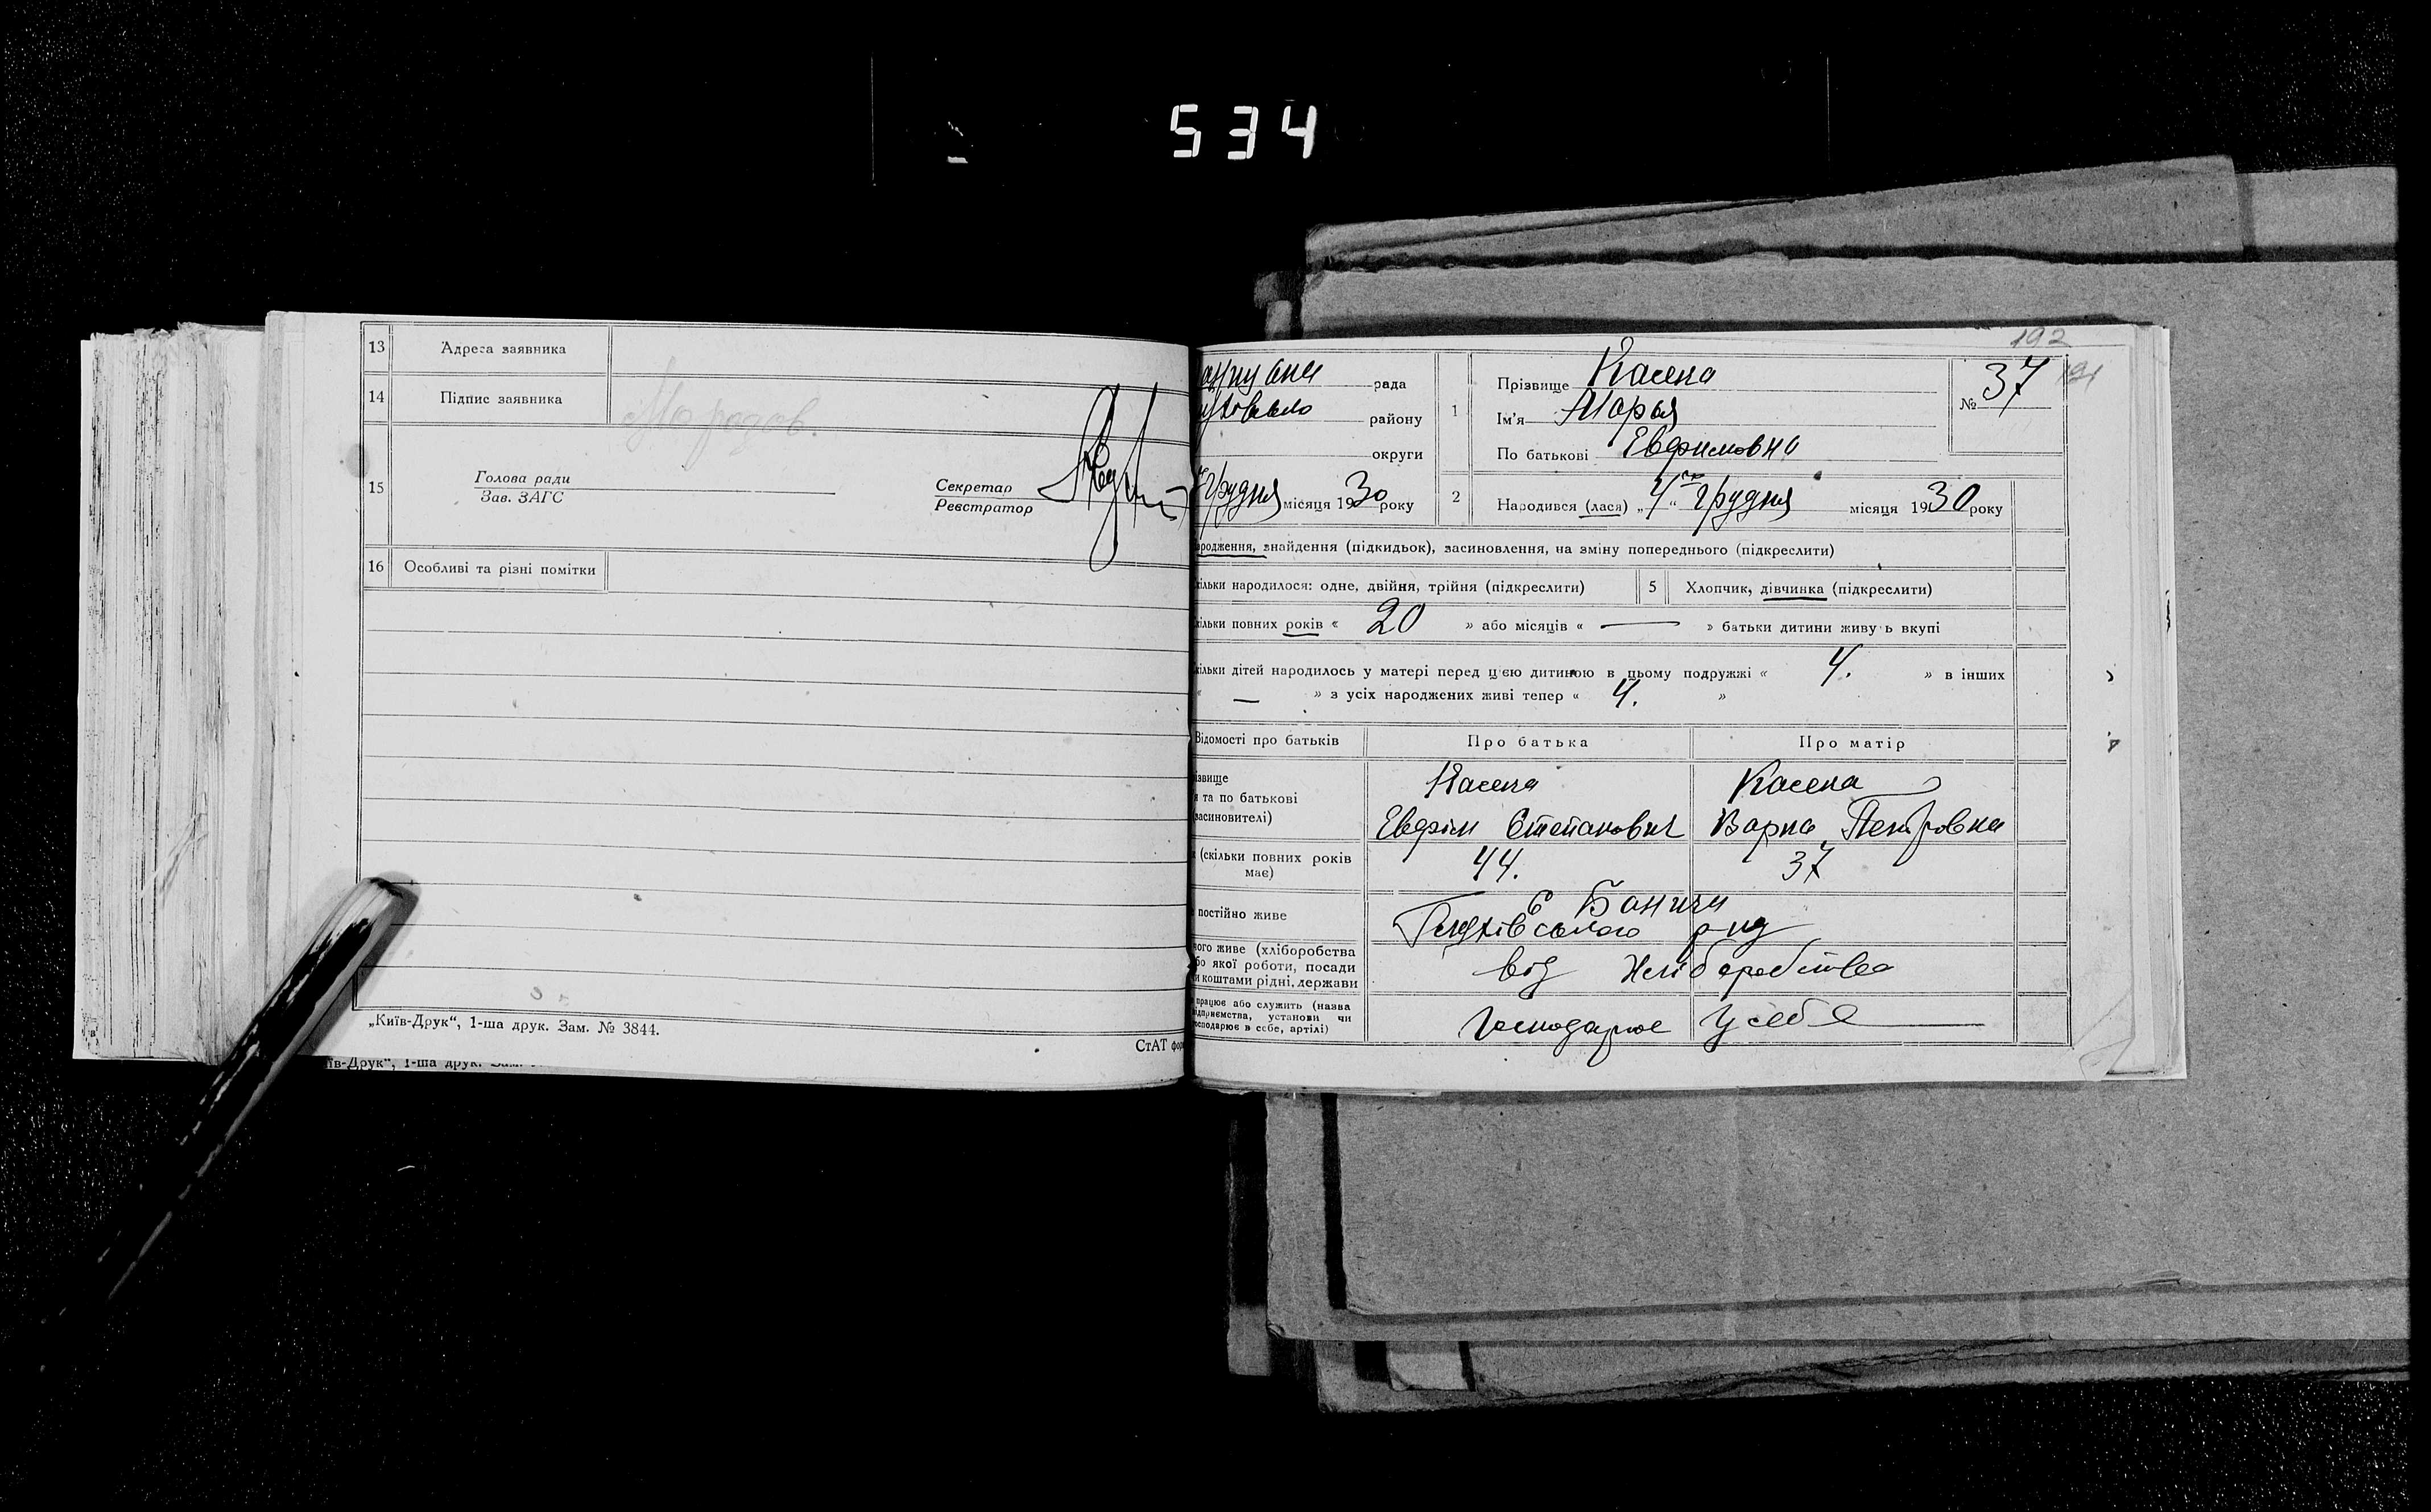 534
13 Адреса заявника
14 Підпис заявника
15 Голова ради
Зав. ЗАГС
Секретар
Реєстратор
16 Особливі та різні помітки
„Київ-Друк“, 1-ша друк. Зам. № 3844.
СтАТ фор
їв-Друк“, 1-ша друк. Зам.
192
191
рада
району
округи
грудня місяця 1930 року
1 Прізвище Касена
Ім'я Марья
По батькові Евфимовна
№ 37
2 Народився (лася) „4“ грудня місяця 1930 року
ародження, знайдення (підкидьок), засиновлення, на зміну попереднього (підкреслити)
кільки народилося: одне, двійня, трійня (підкреслити) 5 Хлопчик, дівчинка (підкреслити)
кільки повних років « 20 » або місяців « — » батьки дитини живуть вкупі
кільки дітей народилось у матері перед цією дитиною в цьому подружжі « 4. » в інших
« — » з усіх народжених живі тепер « 4. »
Відомості про батьків Про батька Про матір
ізвище Касена Касена
я та по батькові
засиновителі) Евфім Степанович Варка Петровна
к (скільки повних років 44. 37
має)
е постійно живе с Баничи
Глухівського р-ну
чого живе (хліборобства
бо якої роботи, посади від Хліборобства
и коштами рідні, держави
працює або служить (назва
ідприємства, установи чи Господарює У себе
осподарює в себе, артілі)